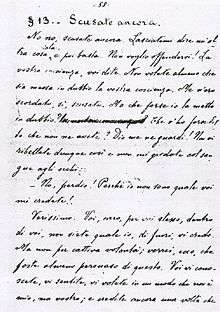 51
§ 13.- Scusate ancora.
No no, scusate ancora. Lasciatemi dire un'al-
tra cosa, e poi basta. Non voglio offendervi. La
vostra coscienza, voi dite. Non volete almeno che
sia messa in dubbio la vostra coscienza. Me n'ero
scordato, sì, scusate. Ma che forse io la metto
in dubbio?
to che non ne avete? Dio me ne guardi! Non vi
ribellate dunque così e non mi guardate col san-
gue agli occhi;
- No, perdio! Perchè io non sono quale voi
mi credete!
Verissimo. Voi, caro, per voi stesso, dentro
di voi, non siete quale io, di fuori, vi credo.
Ma non per cattiva volontà; vorrei, ecco, che
foste almeno persuaso di questo. Voi vi cono-
scete, vi sentite, vi volete in un modo che non è
mio, ma vostro; e credete ancora una volta che